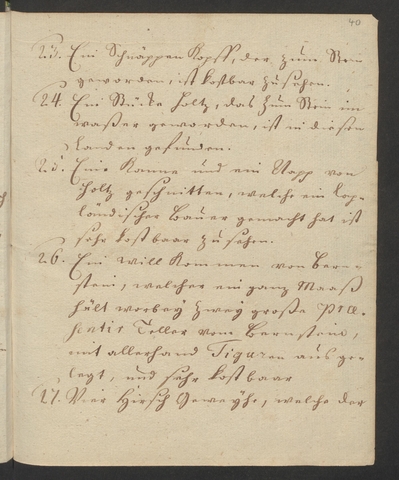 40
23. Ein Schnäppen Kopff, der zum Stein
geworden, ist kostbar zu sehen.
24. Ein Stücke Holtz, das zum Stein im
waßer geworden, ist in diesen
Landen gefunden.
25. Eine Kanne und ein Napp von
Holtz geschnitten, welche ein Lop-
ländischer Bauer gemacht hat ist
sehr kostbaar zu sehen.
26. Ein Will Kommen von Bern-
stein, welcher ein gantz Maaß
hält worbey zwey große Præ-
sentir Teller vom Bernstein,
mit allerhand Figuren aus ge-
legt, und sehr kostbaar
27. Vier Hirsch Geweyhe, welche der